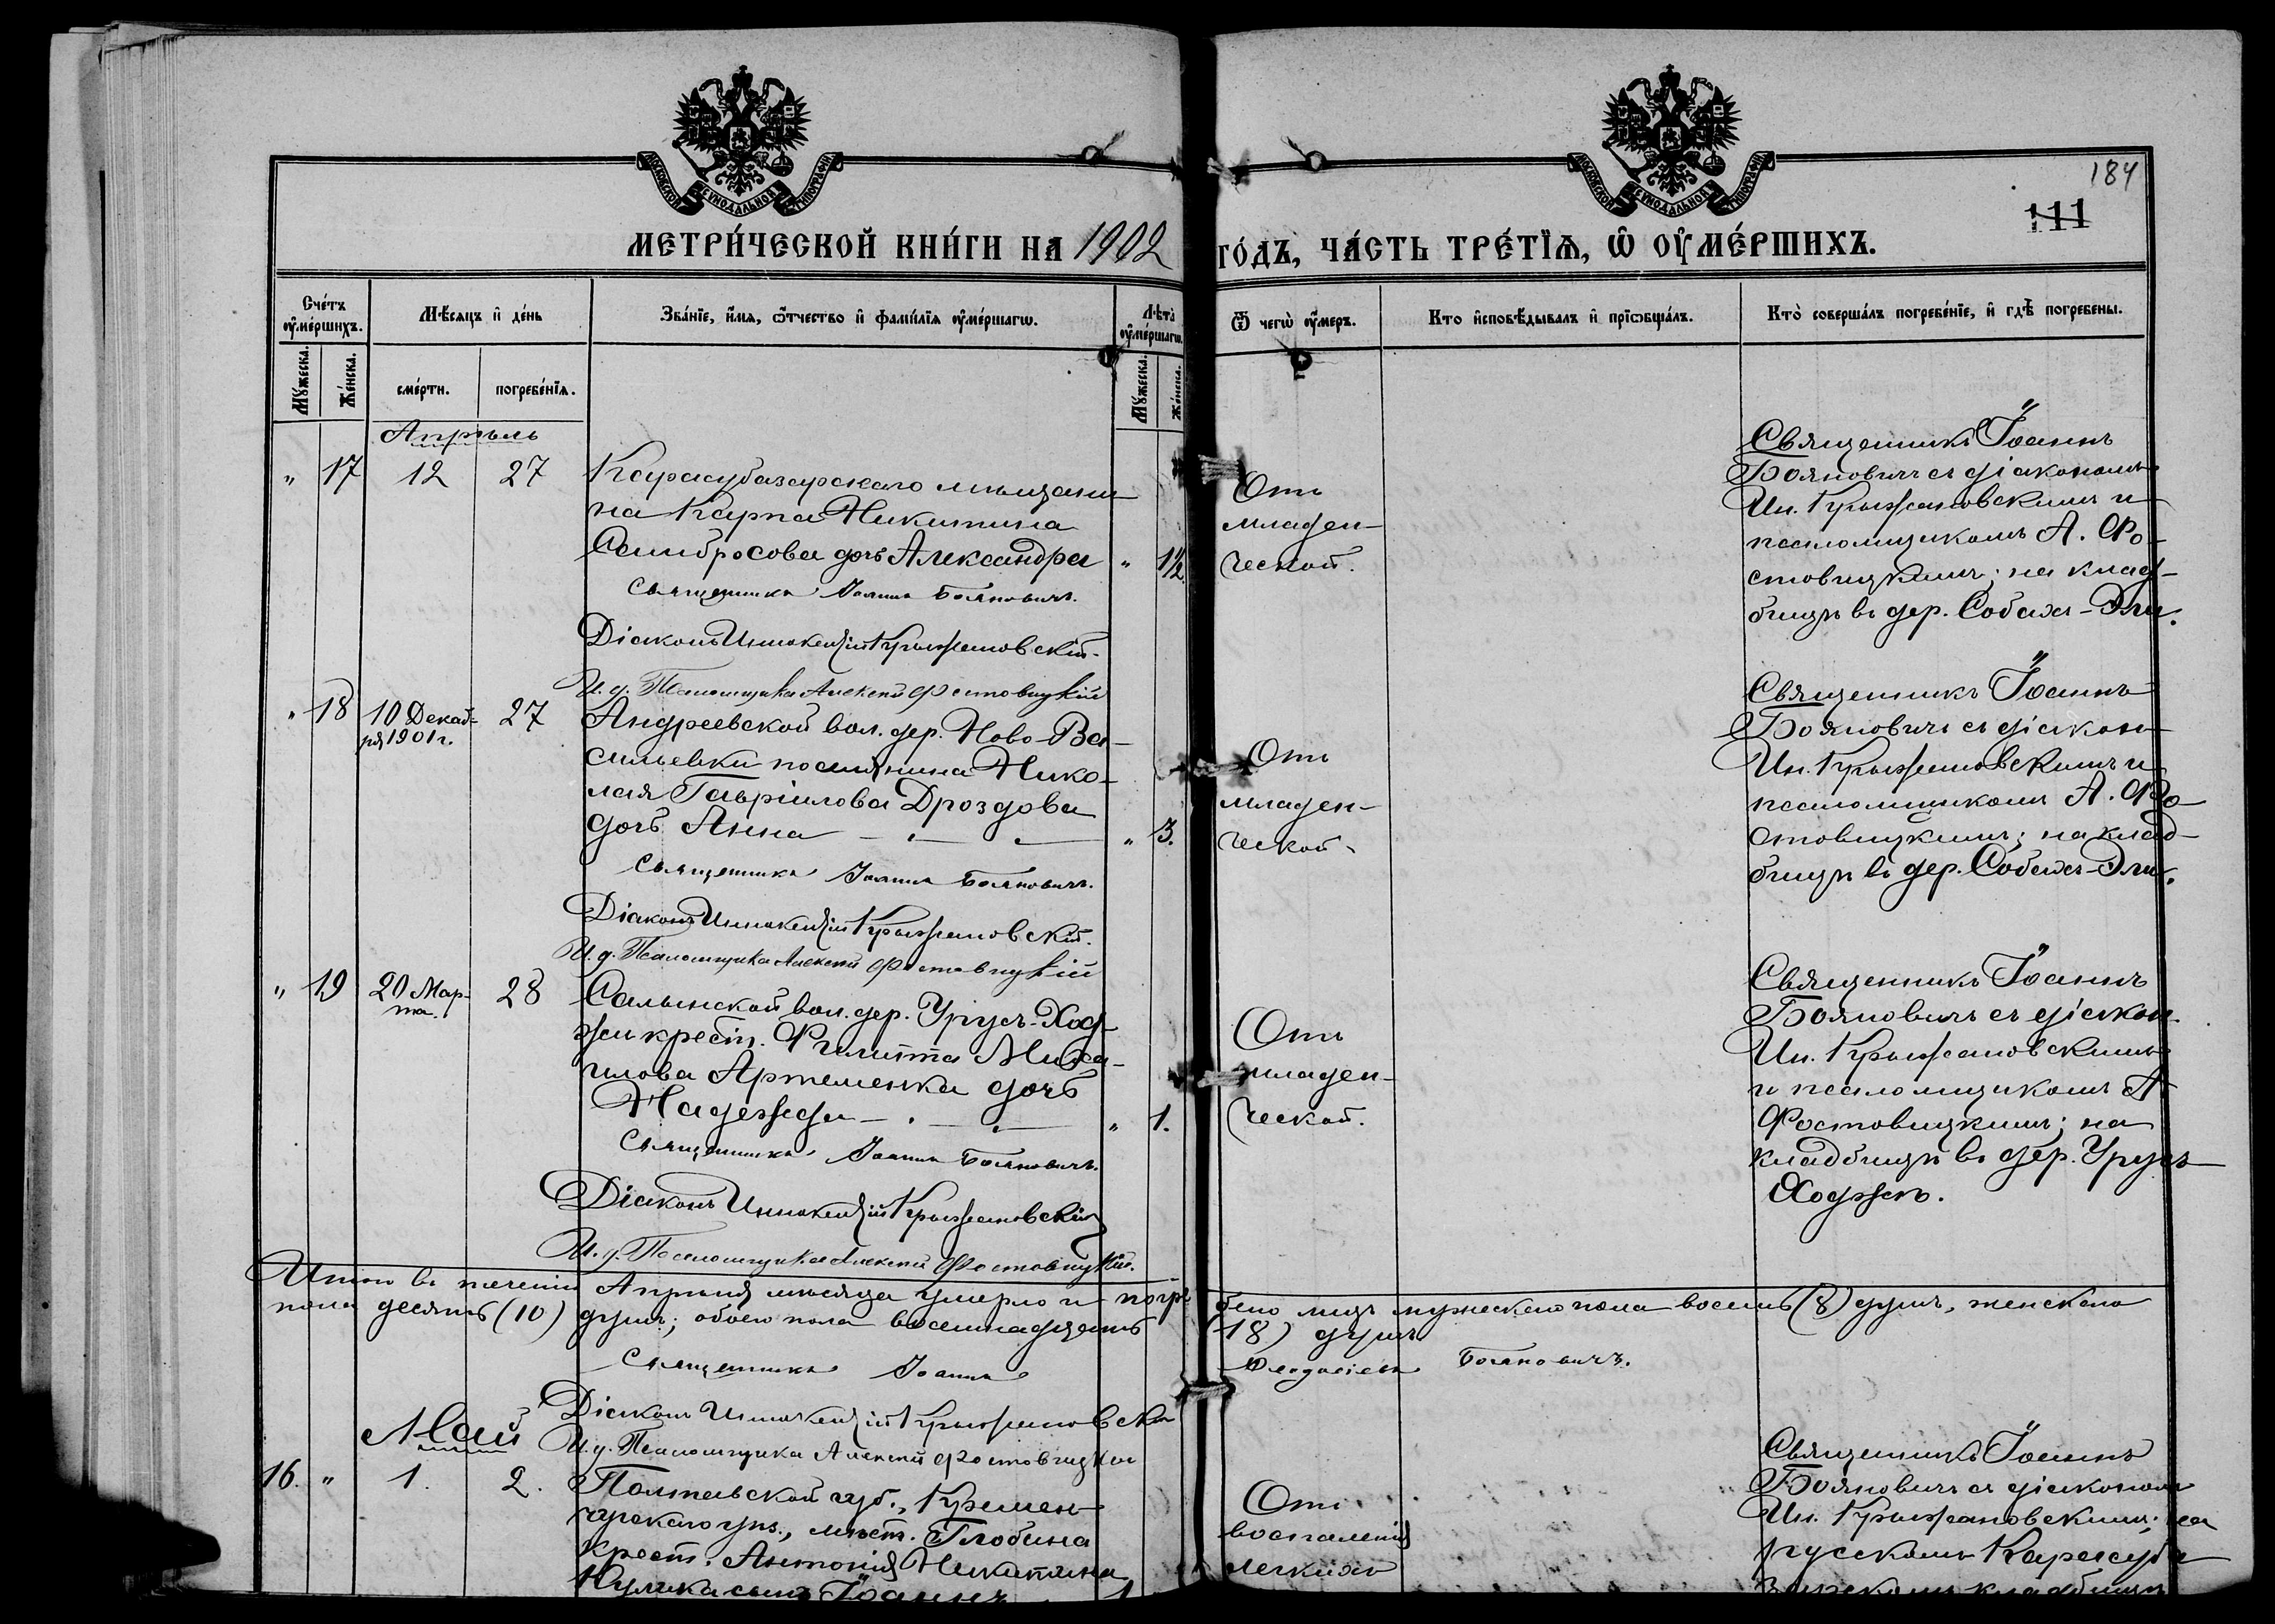 МОСКОВСКОЙ СѴНОДАЛЬНОЙ ТИПОГРАФІИ
МОСКОВСКОЙ СѴНОДАЛЬНОЙ ТИПОГРАФІИ
184
111
МЕТРИ́ЧЕСКОЙ КНИ́ГИ НА 1902 ГО́ДЪ, ЧА́СТЬ ТРЕ́ТІѦ, Ѡ҆ ОУ҆МЕ́РШИХЪ.
Сче́тъ оу҆ме́ршихъ.
Мѣ́сяцъ и҆ де́нь
Зва́нїе, и҆́мѧ, ѻ҆́тчество и҆ фами́лїѧ оу҆ме́ршагѡ.
Лѣ́та оу҆ме́ршагѡ.
Ѿ чегѡ̀ оу҆́меръ.
Кто и҆сповѣ́дывалъ и҆ прїѡбща́лъ.
Кто̀ соверша́лъ погребе́нїе, и҆ гдѣ̀ погребены.
Мꙋ́жеска.
Же́нска.
сме́рти.
погребе́нїѧ.
Мꙋ́жеска.
Же́нска.
Апрѣль
" 17 12 27
Карасубазарскаго мѣщани-
на Карпа Никитина
Самбросова дочь Александра " 1½
Священникъ Іоаннъ Бояновичъ.
Діаконъ Иннокентій Крыжановскій.
И. д. Псаломщика Алексѣй Фостовицкій
Отъ
младен-
ческой.
Священникъ Іоаннъ
Бояновичъ съ діакономъ
Ин. Крыжановскимъ и
псаломщикомъ А. Фо-
стовицкимъ; на клад-
бищѣ въ дер. Собахъ-Эли.
" 18 10 Декаб-
ря 1901 г. 27
Андреевской вол. дер. Ново-Ва-
сильевки поселянина Нико-
лая Гавріилова Дроздова
дочь Анна " 3.
Священникъ Іоаннъ Бояновичъ.
Діаконъ Иннокентій Крыжановскій.
И. д. Псаломщика Алексѣй Фостовицкій
Отъ
младен-
ческой.
Священникъ Іоаннъ
Бояновичъ съ діакон.
Ин. Крыжановскимъ и
псаломщикомъ А. Фо-
стовицкимъ; на клад-
бищѣ въ дер. Собахъ-Эли.
" 19 20 Мар-
та. 28
Салынской вол. дер. Урусъ-Ход-
жи крест. Филиппа Миха-
илова Артеменка дочь
Надежда " 1.
Священникъ Іоаннъ Бояновичъ.
Діаконъ Иннокентій Крыжановскій
И. д. Псаломщика Алексѣй Фостовицкій.
Отъ
младен-
ческой.
Священникъ Іоаннъ
Бояновичъ съ діакон.
Ин. Крыжановскимъ
и псаломщикомъ А
Фостовицкимъ; на
кладбищѣ въ дер. Урусъ
Ходжѣ.
Итого въ теченіи Апрѣля мѣсяца умерло и погре бено лицъ мужескаго пола восемь (8) душъ, женскаго
пола десять (10) душъ; обоего пола восемнадцать 18) душъ
Священникъ Іоаннъ Бояновичъ.
Діаконъ Иннокентій Крыжановскій
И. д. Псаломщика Алексѣй Фостовицкій
Май
16. " 1. 2.
Полтавской губ., Кремен-
чугскаго уѣз., мѣст. Глобина
крест. Антонія Никитина
Кулика сынъ Іоаннъ 1
Отъ
воспаленія
легкихъ
Священникъ Іоаннъ
Бояновичъ съ діакономъ
Ин. Крыжановскимъ; на
русскомъ Карасуба-
зарскомъ кладбищѣ